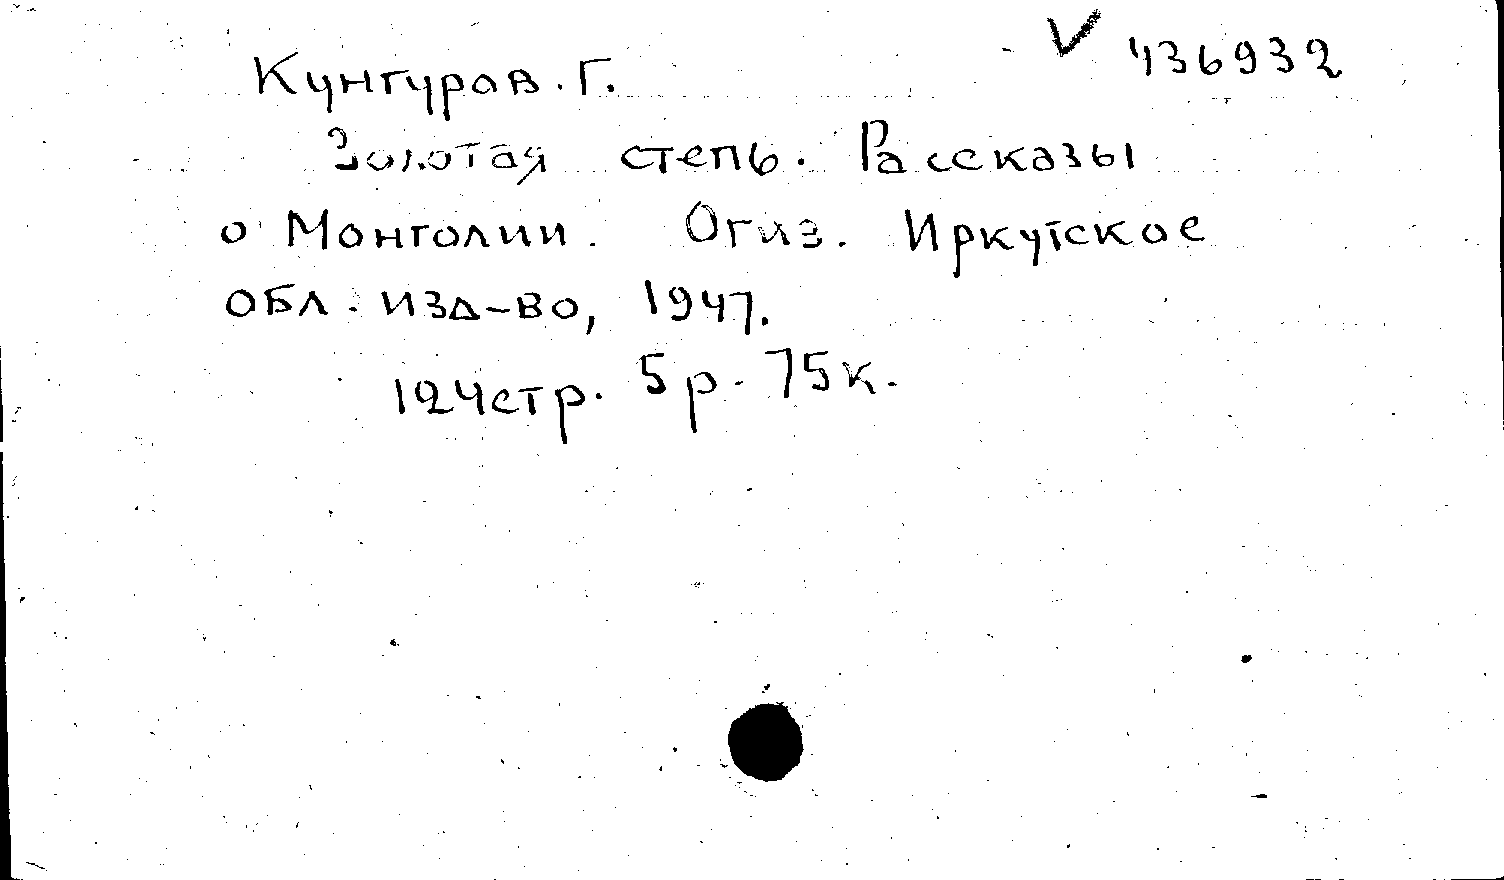 V 436932
Кунгуров. Г.
Золотая степь. Рассказы
о Монголии. Огиз. Иркутское
обл. изд-во, 1947.
124стр. 5р. 75к.